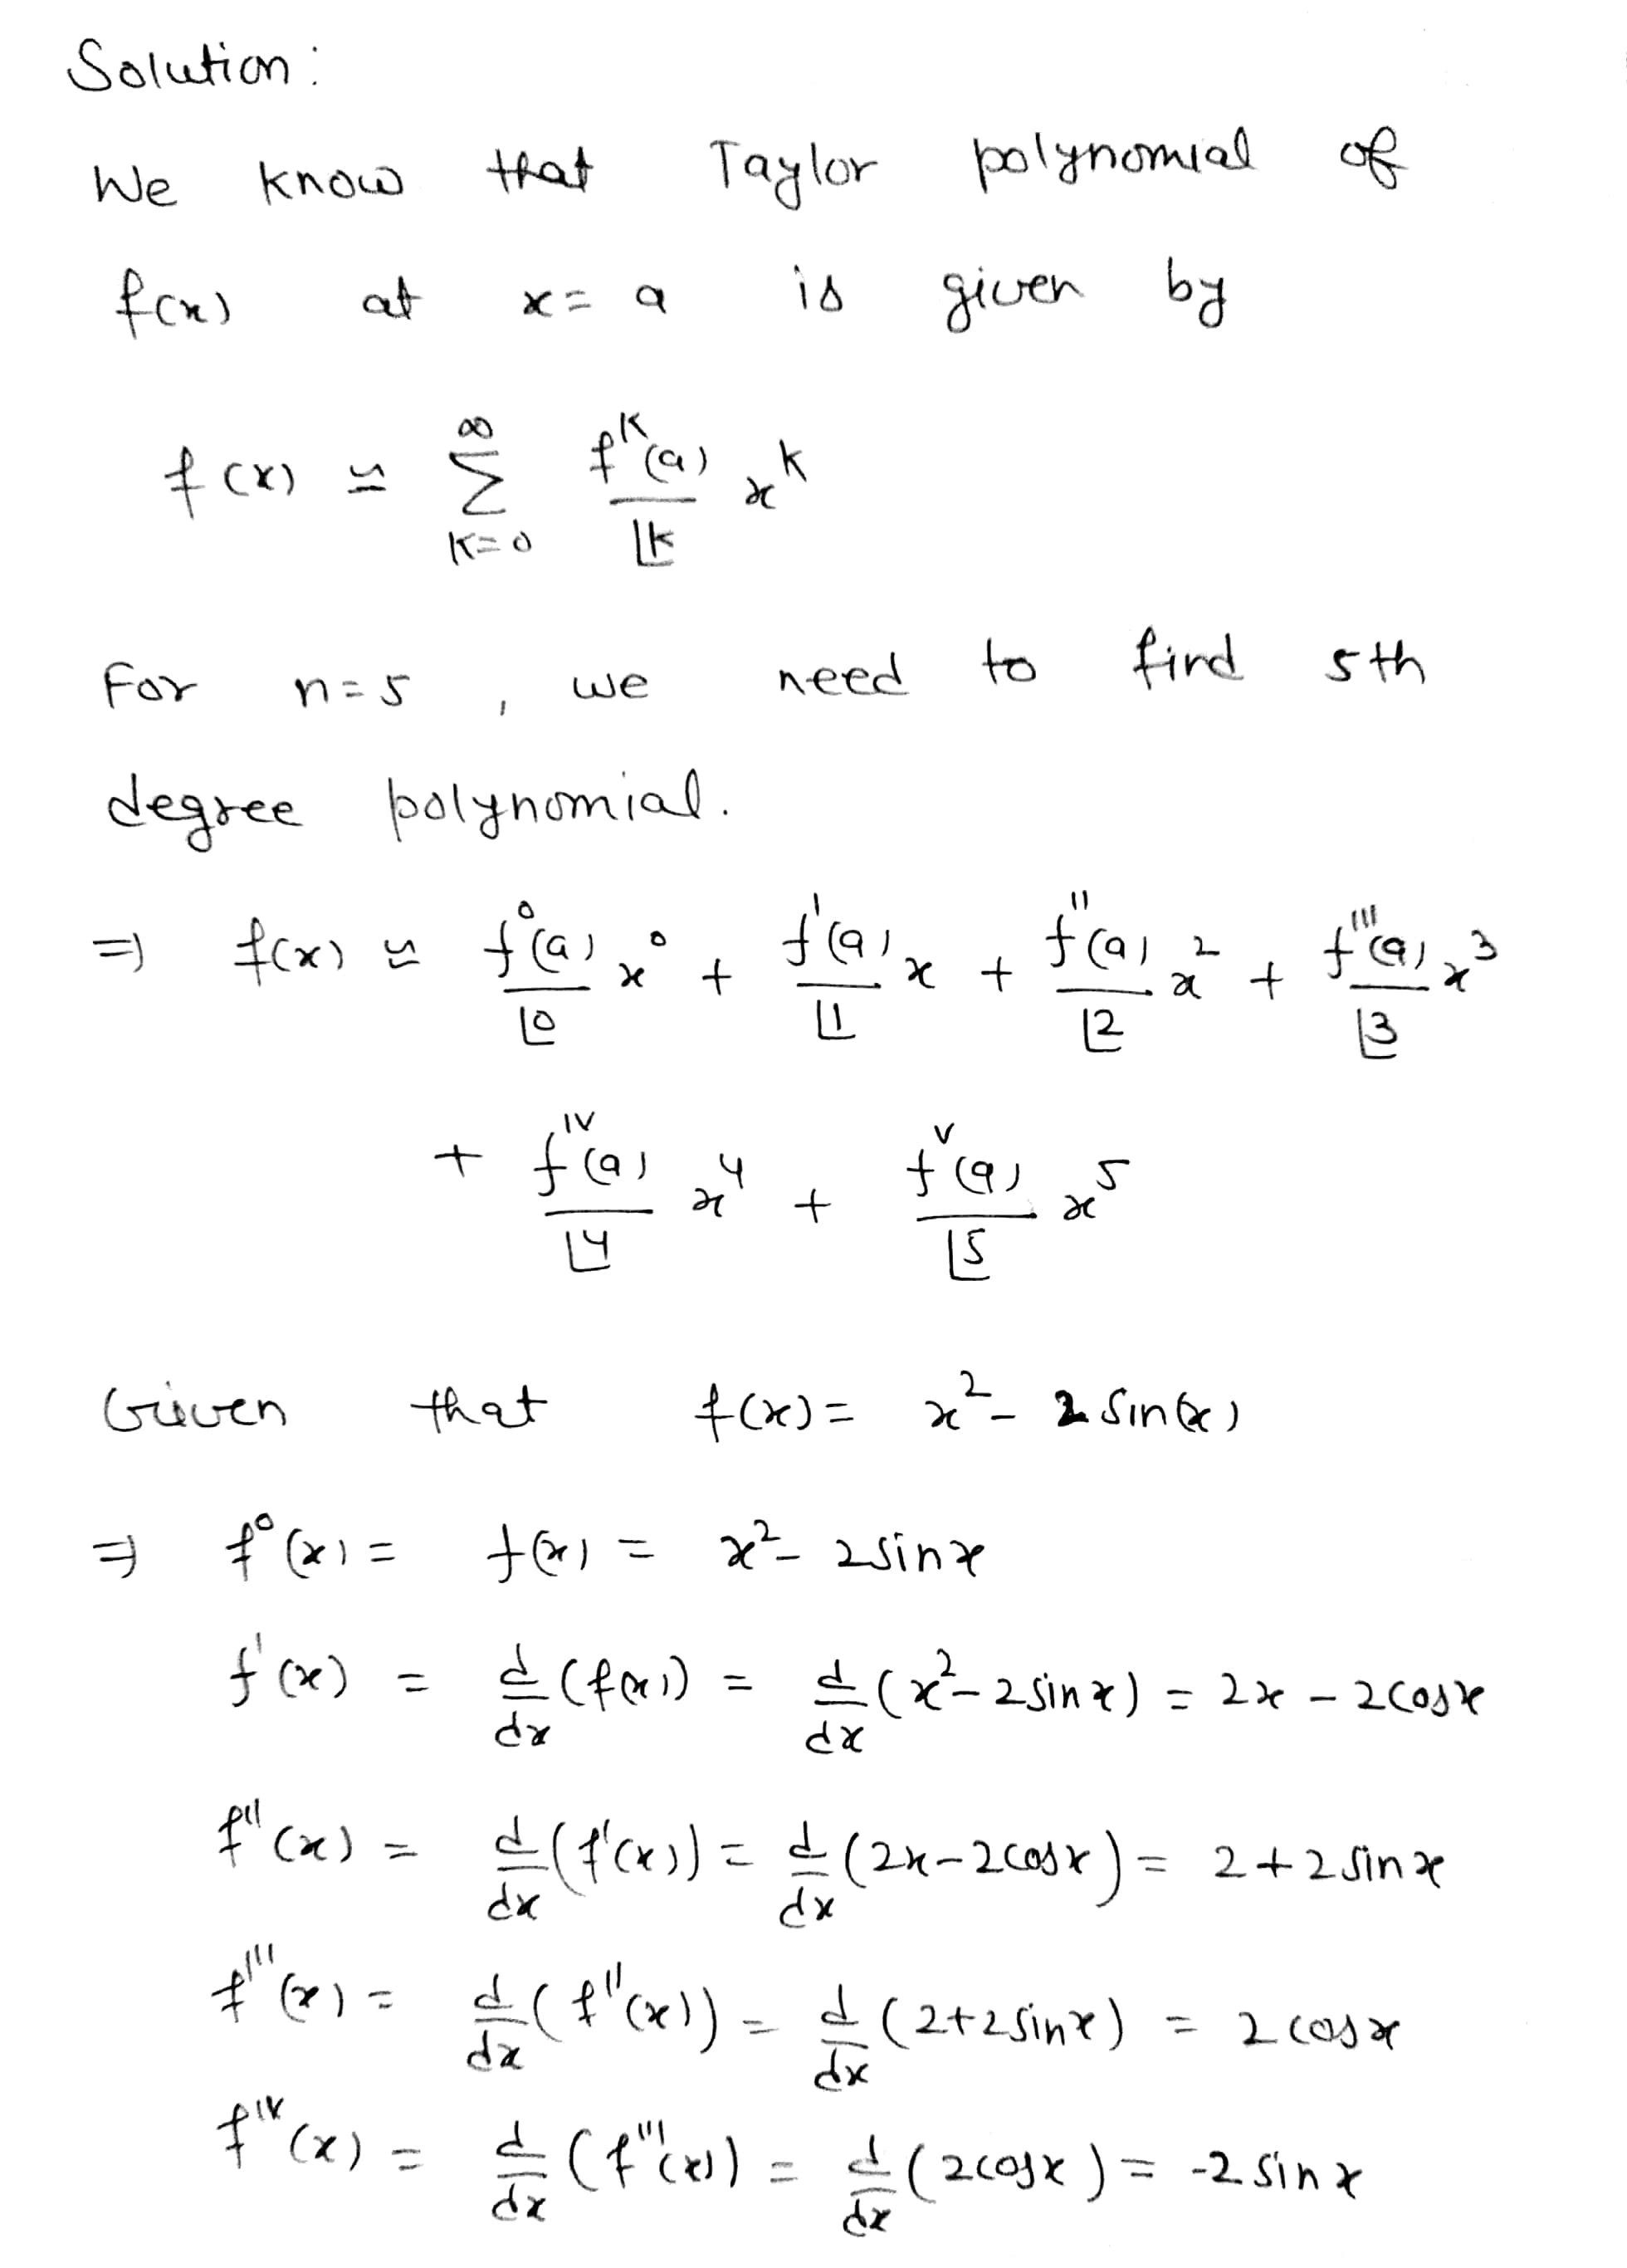 Solution:
We know that Taylor polynomial of
f(x) at x = a is given by
f(x) ≃ ∑_{K=0}^{∞} \frac{f^K(a)}{⌊k} x^k
For n=5, we need to find 5th
degree polynomial.
⇒ f(x) ≃ \frac{f^0(a)}{⌊0} x^0 + \frac{f'(a)}{⌊1} x + \frac{f''(a)}{⌊2} x^2 + \frac{f'''(a)}{⌊3} x^3
+ \frac{f^{IV}(a)}{⌊4} x^4 + \frac{f^V(a)}{⌊5} x^5
Given that f(x) = x^2 - 2 Sin(x)
⇒ f^0(x) = f(x) = x^2 - 2sinx
f'(x) = \frac{d}{dx}(f(x)) = \frac{d}{dx}(x^2 - 2sinx) = 2x - 2cosx
f''(x) = \frac{d}{dx}(f'(x)) = \frac{d}{dx}(2x-2cosx) = 2+2sinx
f'''(x) = \frac{d}{dx}(f''(x)) = \frac{d}{dx}(2+2sinx) = 2cosx
f^{IV}(x) = \frac{d}{dx}(f'''(x)) = \frac{d}{dx}(2cosx) = -2sinx